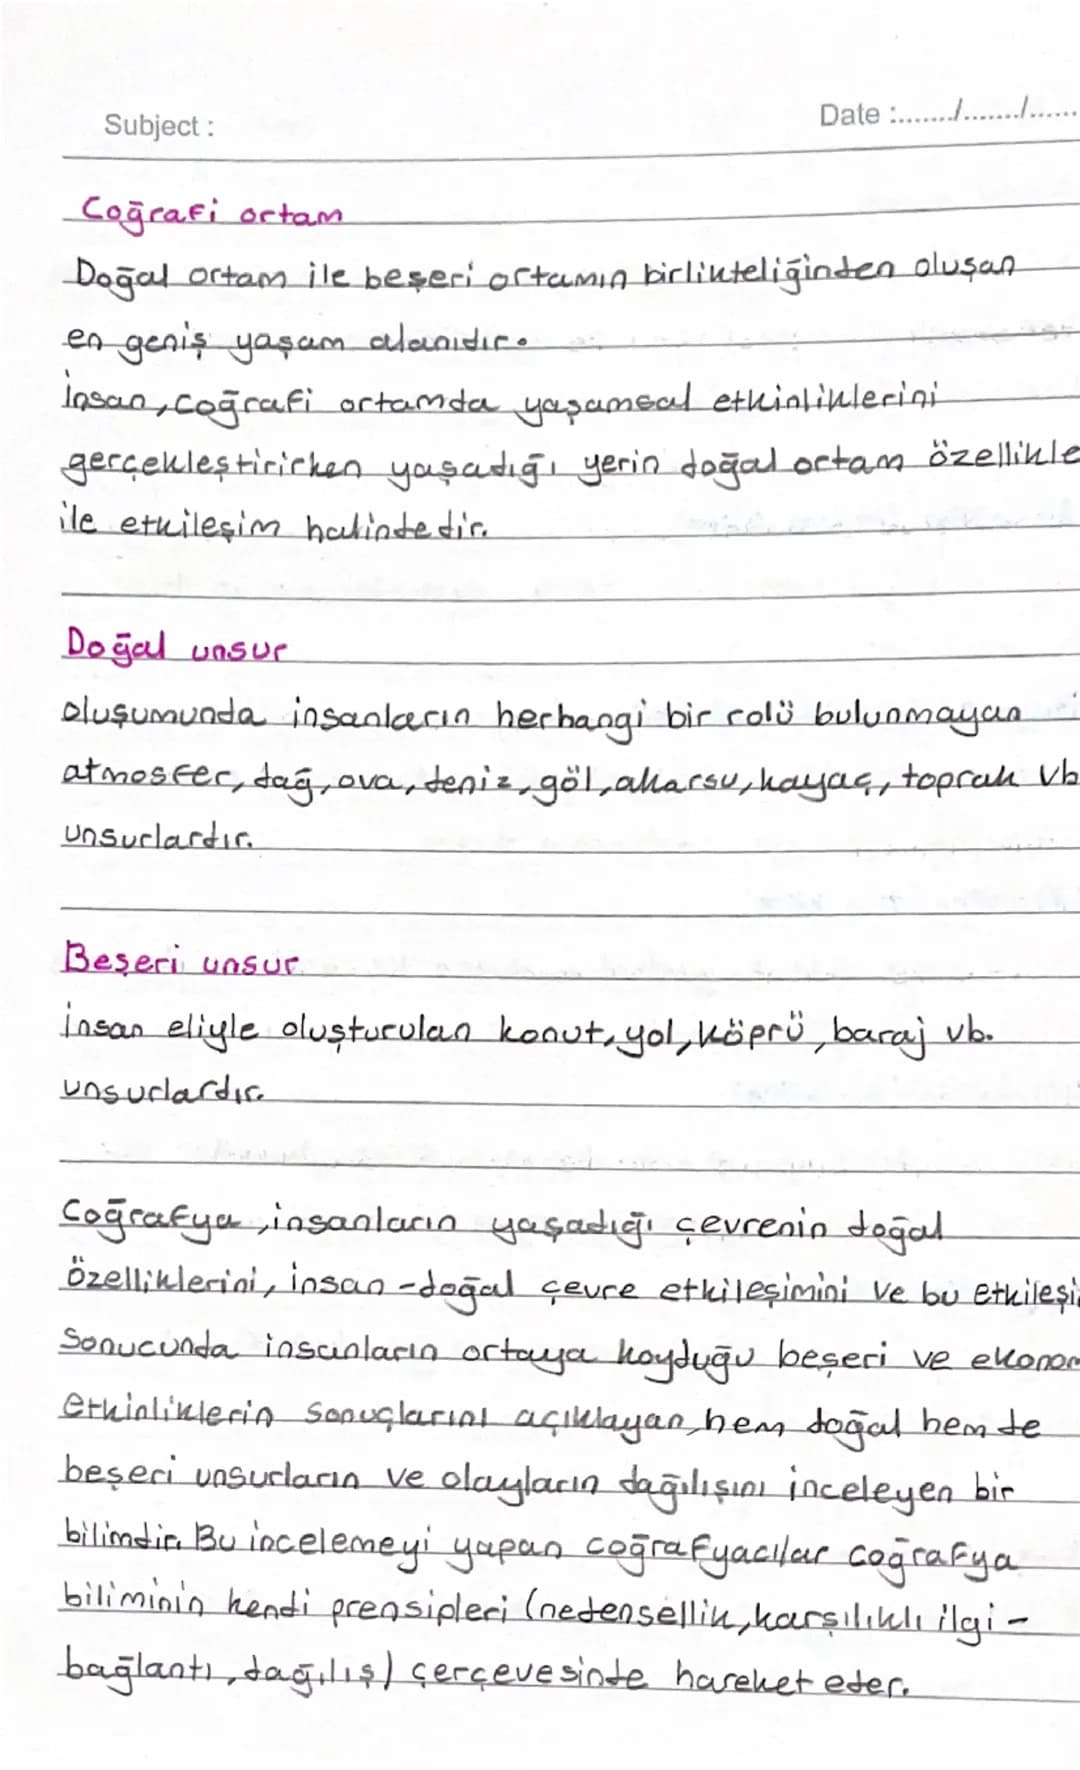 Subject :
Date :......./......./......
Coğrafi ortam
Doğal ortam ile beşeri ortamın birlikteliğinden oluşan
en geniş yaşam alanıdır.
İnsan, coğrafi ortamda yaşamsal etkinliklerini
gerçekleştirirken yaşadığı yerin doğal ortam özellikle
ile etkileşim halindedir.
Doğal unsur
oluşumunda insanların herhangi bir rolü bulunmayan
atmosfer, dağ, ova, deniz, göl, akarsu, kayaç, toprak vb
unsurlardır.
Beşeri unsur
İnsan eliyle oluşturulan konut, yol, köprü, baraj vb.
unsurlardır.
Coğrafya, insanların yaşadığı çevrenin doğal
özelliklerini, insan-doğal çevre etkileşimini ve bu etkileşi
sonucunda insanların ortaya koyduğu beşeri ve ekonom
etkinliklerin sonuçlarını açıklayan, hem doğal hem de
beşeri unsurların ve olayların dağılışını inceleyen bir
bilimdir. Bu incelemeyi yapan coğrafyacılar coğrafya
biliminin kendi prensipleri (nedensellik, karşılıklı ilgi-
bağlantı, dağılış) çerçevesinde hareket eder.